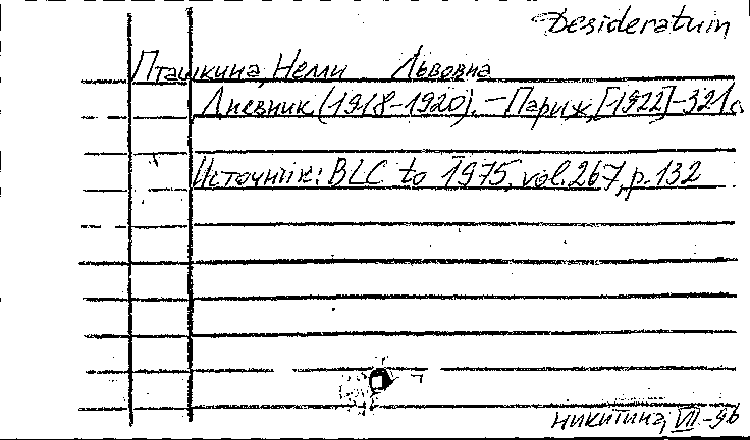 Desideratum
Пташкина, Нелли Львовна
Дневник (1918-1920). - Париж, [1922] - 321 с.
Источник: BLC to 1975, vol. 267, p. 132
Никитина, VII-96